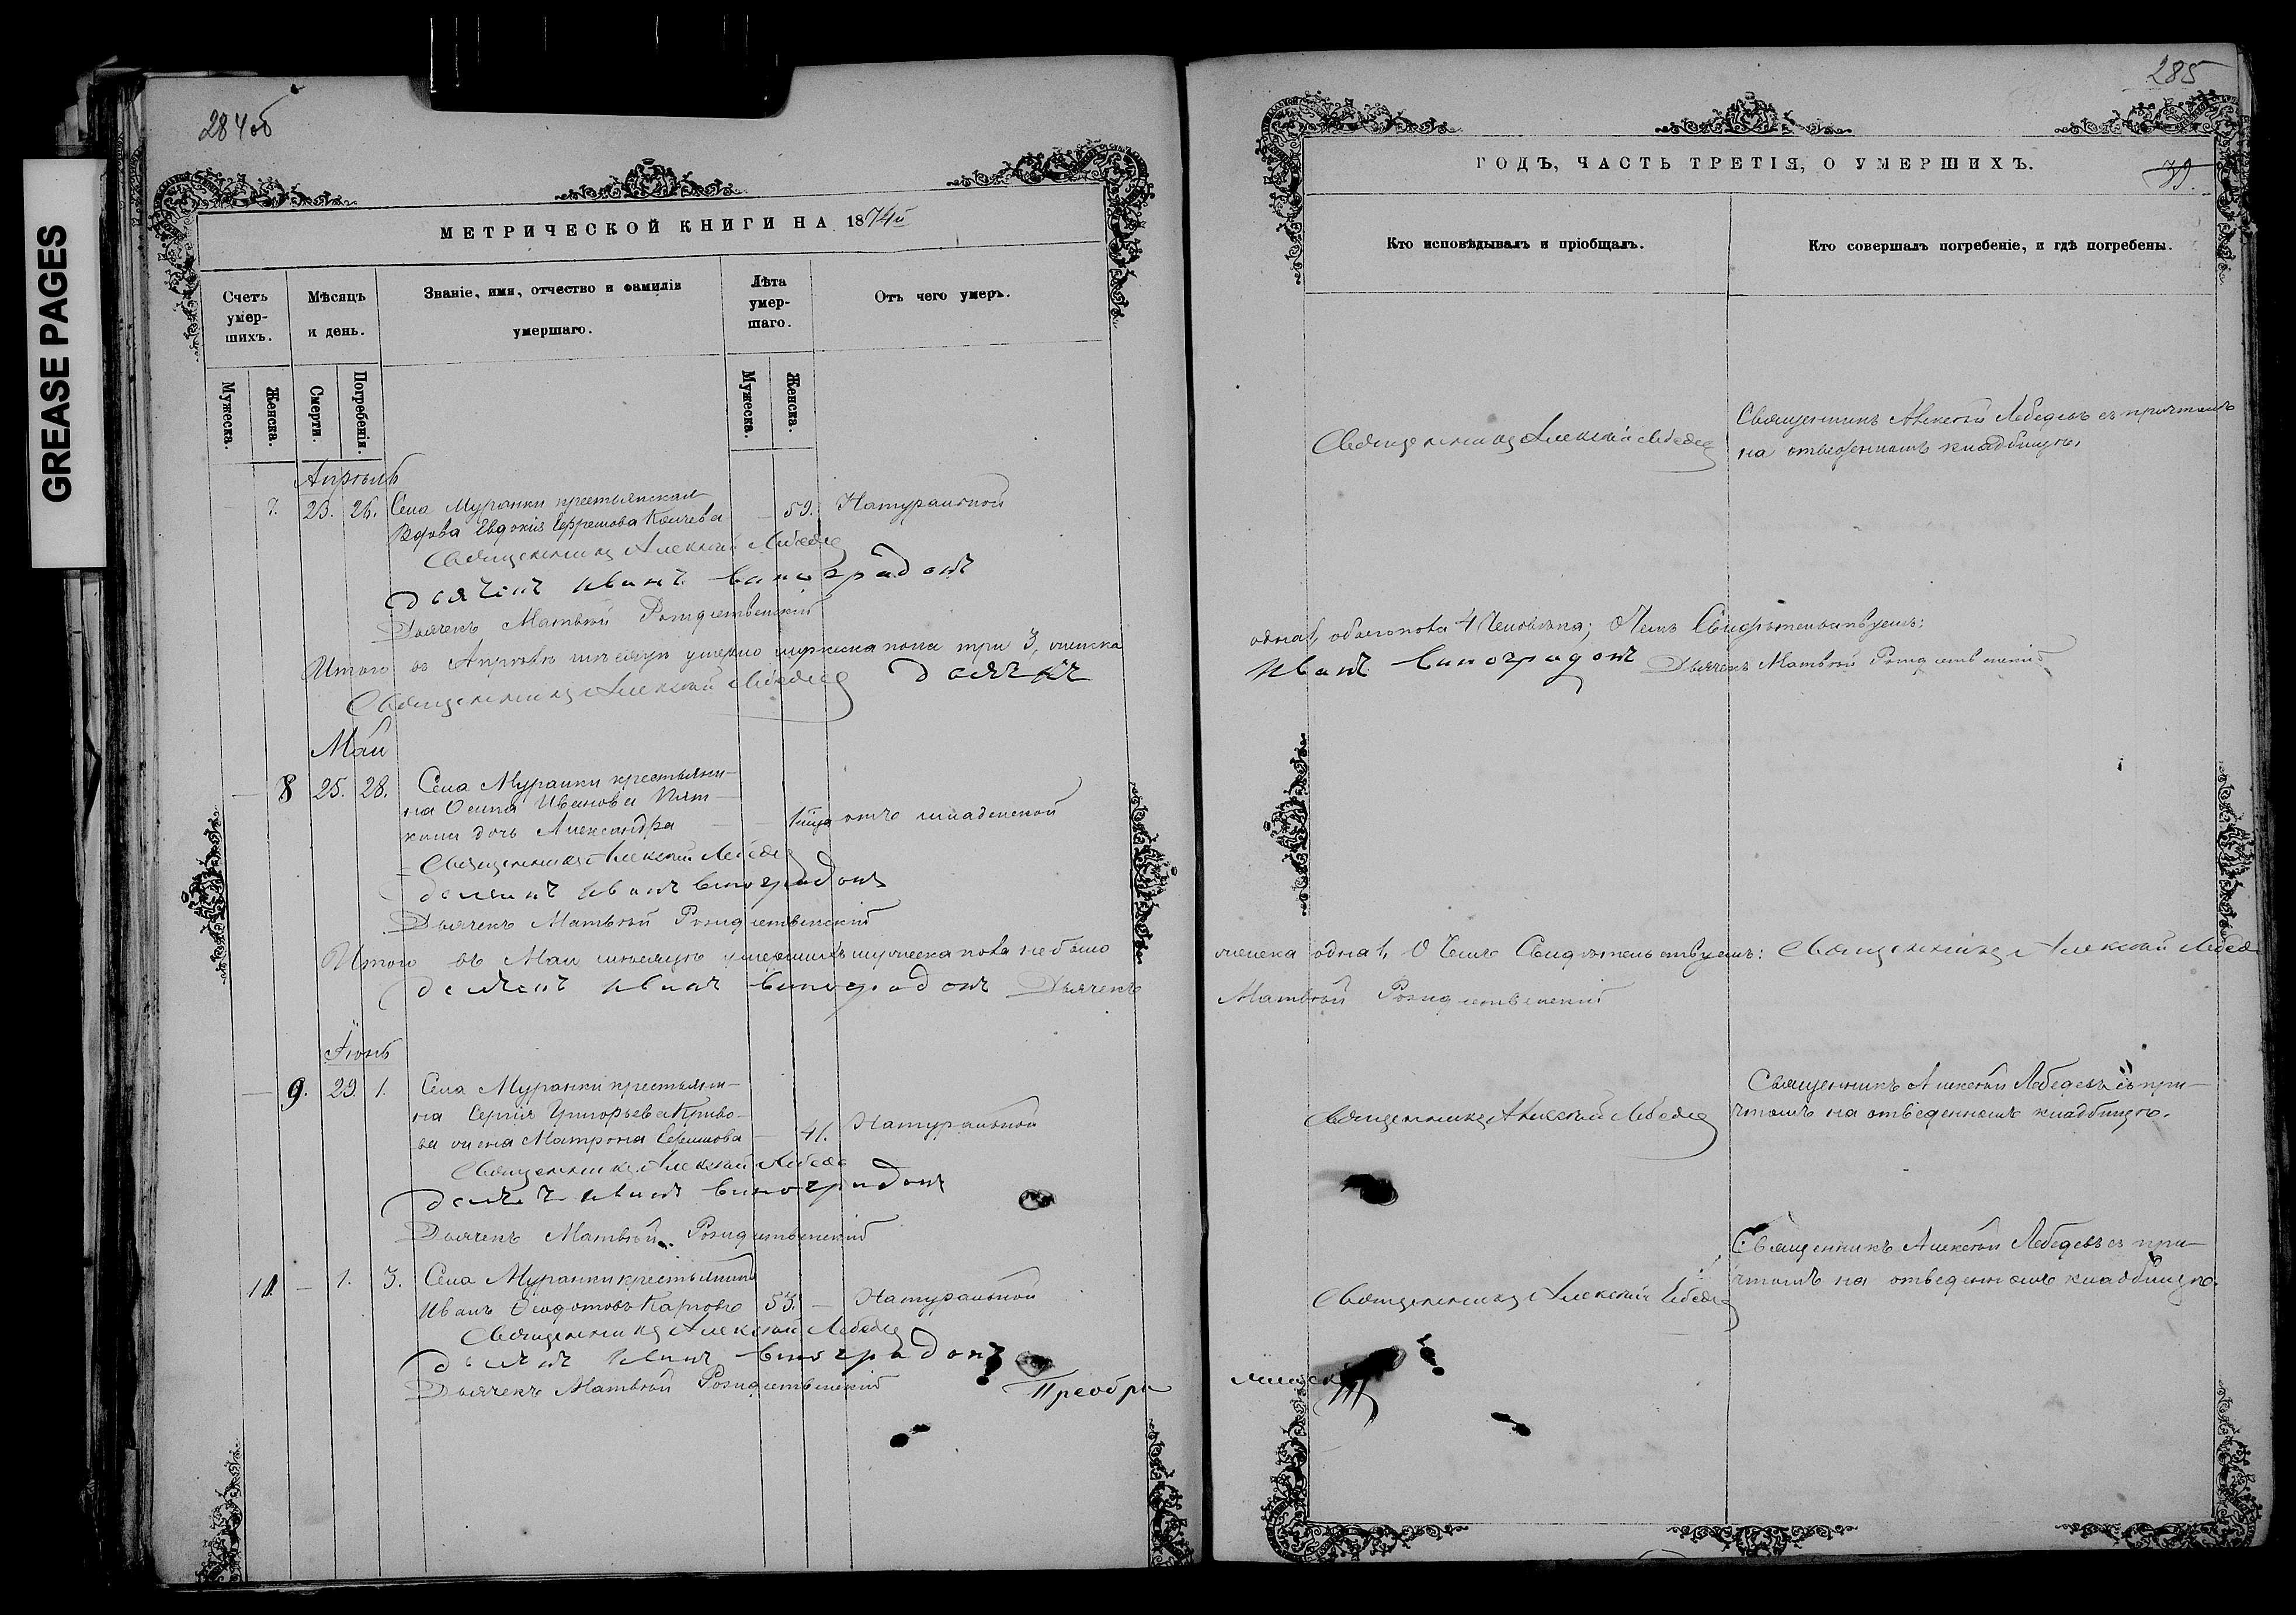 GREASE PAGES
284об
МЕТРИЧЕСКОЙ КНИГИ НА 1874й
Счетъ умер-шихъ.
Мѣсяцъ и день.
Званіе, имя, отчество и фамилія умершаго.
Лѣта умер-шаго.
Отъ чего умеръ.
Мужеска.
Женска.
Смерти.
Погребенія.
Мужеска.
Женска.
Апрѣль
7. 23. 26. Села Муранки крестьянская
Вдова Евдокія Ефремова
— 59. Натуральной
Священникъ Алексѣй Лебедев
Дьячекъ Иванъ Виноградовъ
Дьячекъ Матвѣй Рождественскій
Итого въ Апрѣлѣ мѣсяцѣ умерло мужеска пола три 3, женска
Священникъ Алексѣй Лебедев Дьячекъ
Май
— 8 25. 28. Села Муранки крестьяни-
на Осипа Иванова
дочь Александра — — отъ младенской
Священникъ Алексѣй Лебедев
Дьячекъ Иванъ Виноградовъ
Дьячекъ Матвѣй Рождественскій
Итого въ Маи мѣсяцѣ умершихъ мужеска пола не было
Дьячекъ Иванъ Виноградовъ Дьячекъ
Іюнь
— 9. 29. 1. Села Муранки крестьяни-
на Сергія Григорьева Криво-
ва жена Матрона — 41. Натуральной
Священникъ Алексѣй Лебедев
Дьячекъ Иванъ Виноградовъ
Дьячекъ Матвѣй Рождественскій
— 1. 3. Села Муранки крестьянинъ
Иванъ Ѳедотовъ 53. — Натуральной
Священникъ Алексѣй Лебедев
Дьячекъ Иванъ Виноградовъ
Дьячекъ Матвѣй Рождественскій
Преобра
285
ГОДЪ, ЧАСТЬ ТРЕТІЯ, О УМЕРШИХЪ.
39.
Кто исповѣдывалъ и пріобщалъ.
Кто совершалъ погребеніе, и гдѣ погребены.
Священникъ Алексѣй Лебедев
Священникъ Алексѣй Лебедевъ съ причтомъ
на отведенномъ кладбищѣ.
одна 1, обоего пола 4 человѣка; О чемъ Свидѣтельствуемъ:
Иванъ Виноградовъ Дьячекъ Матвѣй Рождественскій
женска одна 1, О чемъ Свидѣтельствуемъ: Священникъ Алексѣй Лебедев
Матвѣй Рождественскій
Священникъ Алексѣй Лебедев
Священникъ Алексѣй Лебедевъ съ при-
чтомъ на отведенномъ кладбищѣ.
Священникъ Алексѣй Лебедев
Священникъ Алексѣй Лебедевъ съ при-
чтомъ на отведенномъ кладбищѣ.